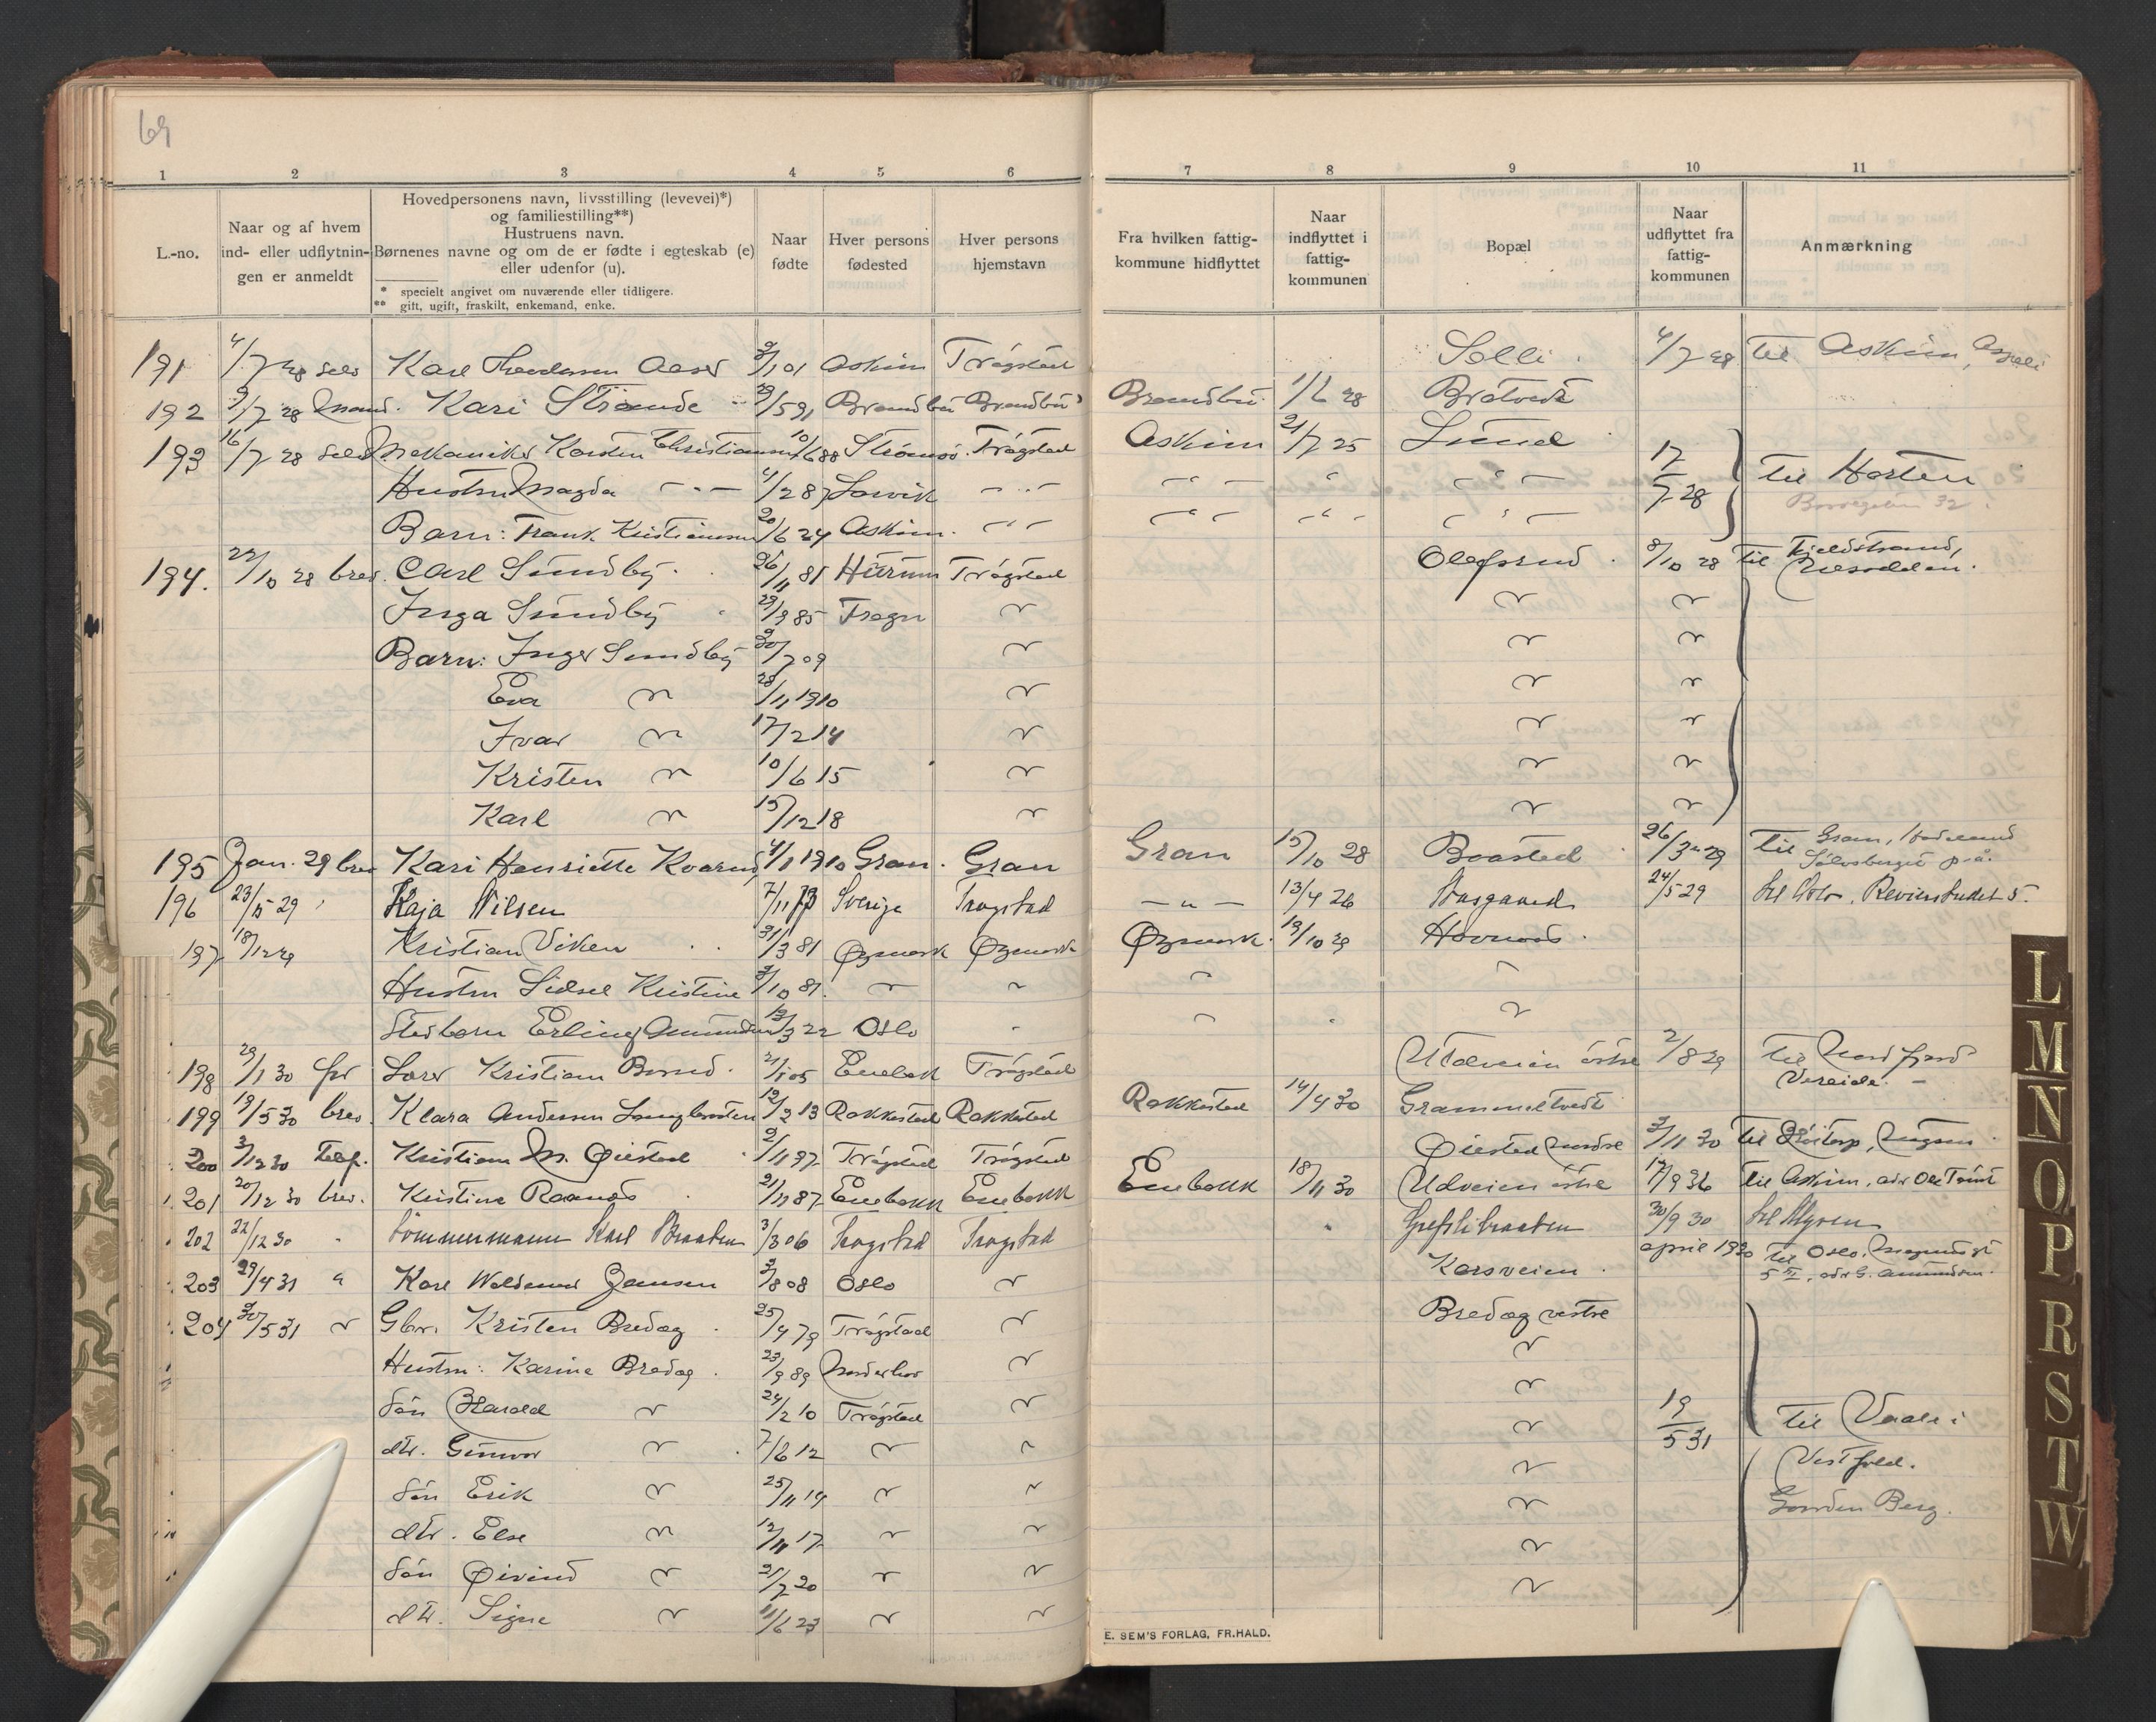 69
1 2 3 4 5 6 7 8 9 10 11
L.-no.
Naar og af hvem
ind- eller udflytnin-
gen er anmeldt
Hovedpersonens navn, livsstilling (levevei)*)
og familiestilling**)
Hustruens navn.
Børnenes navne og om de er fødte i egteskab (e)
eller udenfor (u).
* specielt angivet om nuværende eller tidligere.
** gift, ugift, fraskilt, enkemand, enke.
Naar
fødte
Hver persons
fødested
Hver persons
hjemstavn
Fra hvilken fattig-
kommune hidflyttet
Naar
indflyttet i
fattig-
kommunen
Bopæl
Naar
udflyttet fra
fattig-
kommunen
Anmærkning
191 4/7 28 selv Karl Aaser Askim Trøgstad Solli 4/7 28 til Askim,
192 9/7 28 Mand. Kari Strande 9/5 91 Brandbu Brandbu Brandbu 1/6 28 Bråtvedt
193 16/7 28 selv Mekaniker Karsten Christiansen 10/6 88 Strømsø Trøgstad Askim 21/7 25 Lund 17/7 28 til Horten
Hustru Magda – " – 4/2 87 Larvik – " – – " – " – " – 32
Barn: Frank Kristiansen 20/6 24 Askim. – " – – " – – " – – " –
194. 22/10 28 brev. Carl Sundby 26/11 81 Hurum Trøgstad Olafsrud 8/10 28 til Fjeldstrand, Nesodden.
Inga Sundby 29/9 85 Frogn " " "
Barn: Inger Sundby 30/7 09 " " "
Eva " 28/11 1910 " " "
Ivar " 17/2 14 " " "
Kristen " 10/6 15 " " "
Karl " 15/12 18 " " "
195 Jan. 29 brev Kari Henriette Kvarud 4/1 1910 Gran. Gran Gran 15/10 28 Baastad 26/3 29 til Gran, Hadeland Sølvsberget p.å.
196 23/5 29 Kaja Nilsen 7/11 73 Sverige Trøgstad – " – 13/4 26 24/5 29 til Oslo, Revierstredet 5.
197 18/12 29 Kristian Viken 31/3 81 Øymark Øymark Øymark 19/10 29 Havnås
Hustru Sidsel Kristine 3/10 81. " " " "
Stedbarn Erling Amundsen 13/3 22 Oslo " " "
198 29/1 30 Kristian 21/1 05 Enebak Trøgstad Utdveien østre 2/8 29 til Nordfjord Vereide. –
199 19/5 30 brev. Klara Andersen Langbraaten 12/2 13 Rakkestad Rakkestad Rakkestad 14/4 30 Grammeltvedt
200 3/12 30 telf. Kristian M. Øiestad 2/11 97 Trøgstad Trøgstad Øiestad nordre 3/11 30 til Mysen
201 20/12 30 brev. Kristine Raanås 21/11 87 Enebakk Enebakk Enebakk 18/11 30 Udveien østre 17/9 36 til Askim, adr Ole
202 22/12 30 " Tømmermann Karl Braaten 3/3 06 Trøgstad Trøgstad " Grefslibraaten 30/9 30 til Mysen
203 29/4 31 " Karl Waldemar Jansen 3/8 08 Oslo " Korsveien. april 1930 til Oslo, 5 II, adr G. Amundsen.
204 30/5 31 " Gbr. Kristen Bredag 25/4 79 Trøgstad " Bredag vestre
Hustru: Karine Bredag 23/9 89 Norderhov " "
Søn Harald " 24/2 10 Trøgstad " "
dtr. Gunvor " 7/6 12 " " " 19/5 31 til Vaale i
Søn Erik " 25/11 14 " " " Vestfold.
dtr. Else " 12/11 17 " " " Gaarden Berg.
Søn Øivind " 21/7 20 " " "
dtr. Signe " 11/6 23 " " "
E. SEM'S FORLAG, FR.HALD.
L
M
N
O
P
R
S
T
W